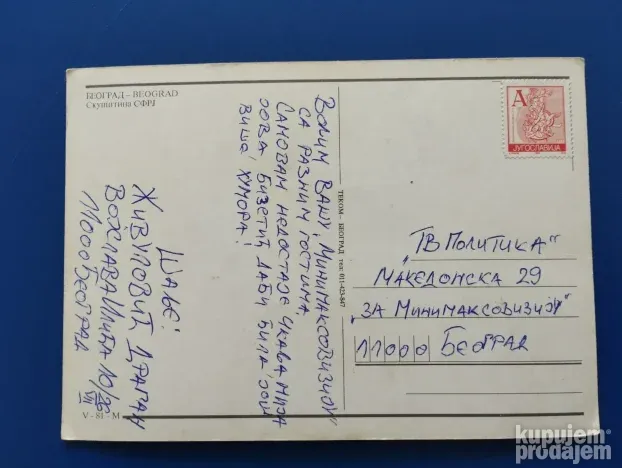 БЕОГРАД – BEOGRAD
Скупштина СФРЈ
Волим Вашу „Минимаксовизију“
са разним гостима.
Само вам недостаје
Виша хумора!
Шаље:
Живуловић Драган
Војислава Илића
11000 Београд
V - 81 - M
ТЕКОМ – БЕОГРАД тел: 011-423-847
А
ЈУГОСЛАВИЈА
„ТВ Политика“
Македонска 29
„За Минимаксовизију“
11000 Београд
kupujem
prodajem